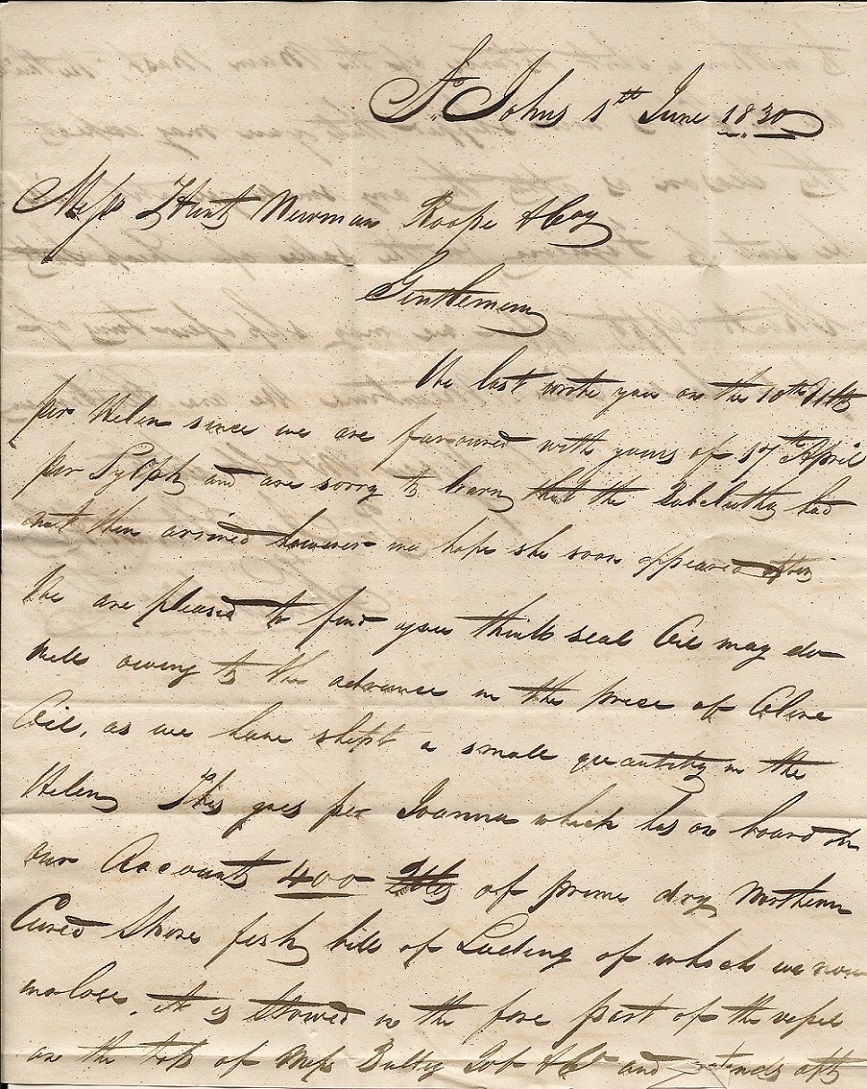 St. Johns 1st June 1830
Messrs Hunt Newman Roope & Coy
Gentlemen
We last wrote you on the 10th Ulto
per Helen since we are favoured with yours of 17th April
per Sylph and are sorry to learn that the had
not then arrived however we hope she soon appeared after
We are pleased to find you think seal Oil may do
well owing to the advance in the price of Olive
Oil, as we have shipt a small quantity in the
Helen This goes per Joanna which has on board on
our Account 400 Qtls of prime dry Northern
Cured Shore fish bill of Lading of which we now
inclose. It is Stowed in the fore part of the vessel
on the top of Messrs Bulley Job & Co and extends aft